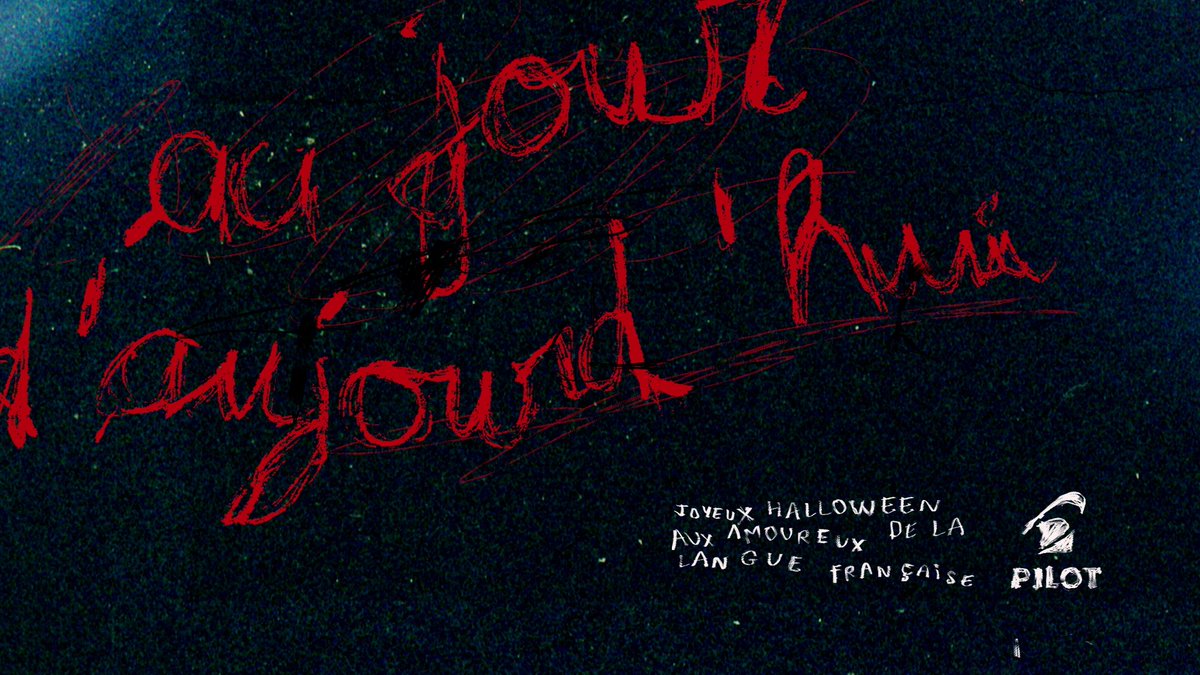 au jour
d'aujourd'hui
JOYEUX HALLOWEEN
AUX AMOUREUX DE LA
LANGUE FRANÇAISE
PILOT